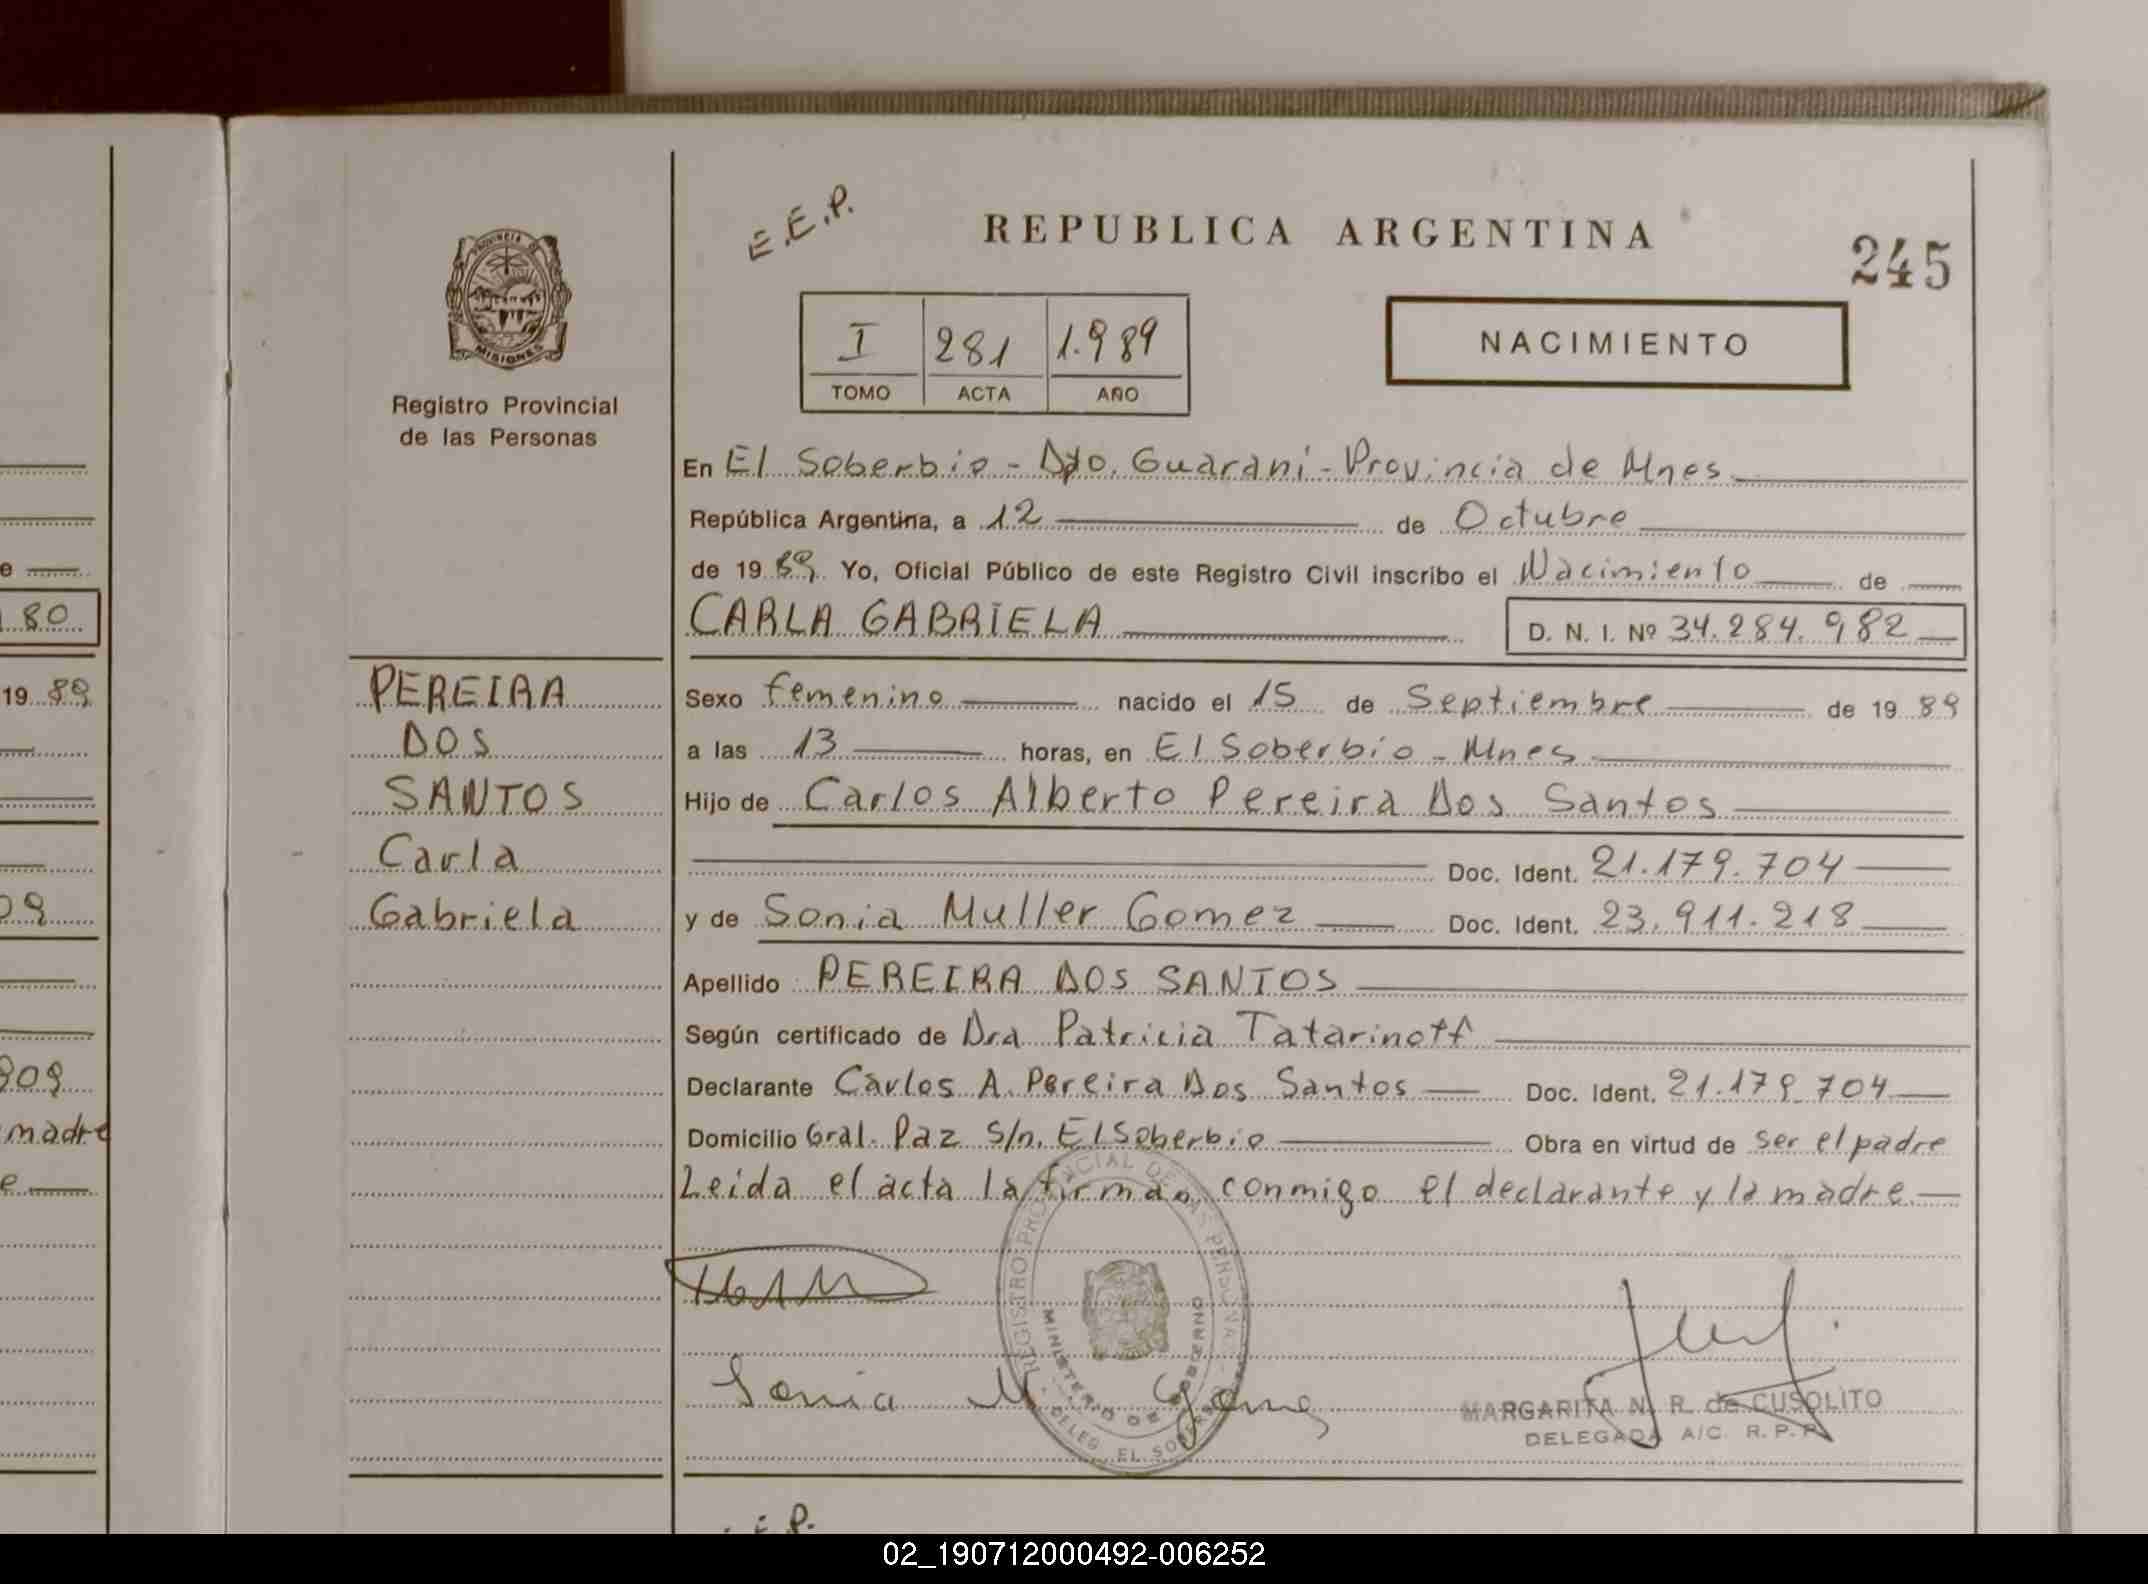 E.E.P.
REPUBLICA ARGENTINA
245
PROVINCIA DE
MISIONES
Registro Provincial
de las Personas
I 281 1.989
TOMO ACTA AÑO
NACIMIENTO
En El Soberbio - Dpto. Guaraní - Provincia de Mnes
República Argentina, a 12 de Octubre
de 1989 Yo, Oficial Público de este Registro Civil inscribo el Nacimiento de
CARLA GABRIELA D. N. I. Nº 34.284.982
PEREIRA
DOS
SANTOS
Carla
Gabriela
Sexo femenino nacido el 15 de Septiembre de 1989
a las 13 horas, en El Soberbio - Mnes
Hijo de Carlos Alberto Pereira Dos Santos
Doc. Ident. 21.179.704
y de Sonia Muller Gomez Doc. Ident. 23.911.218
Apellido PEREIRA DOS SANTOS
Según certificado de Dra Patricia Tatarinoff
Declarante Carlos A. Pereira Dos Santos Doc. Ident. 21.179.704
Domicilio Gral. Paz S/n. El Soberbio Obra en virtud de ser el padre
Leida el acta la firman conmigo el declarante y la madre.
REGISTRO PROVINCIAL DE LAS PERSONAS
MINISTERIO DE GOBIERNO
DELEG. EL SOBERBIO
Sonia M Gomez
MARGARITA N. R. de CUSOLITO
DELEGADA A/C. R. P. P.
E.P.
e
80
19 89
09
909
madre
e
02_190712000492-006252